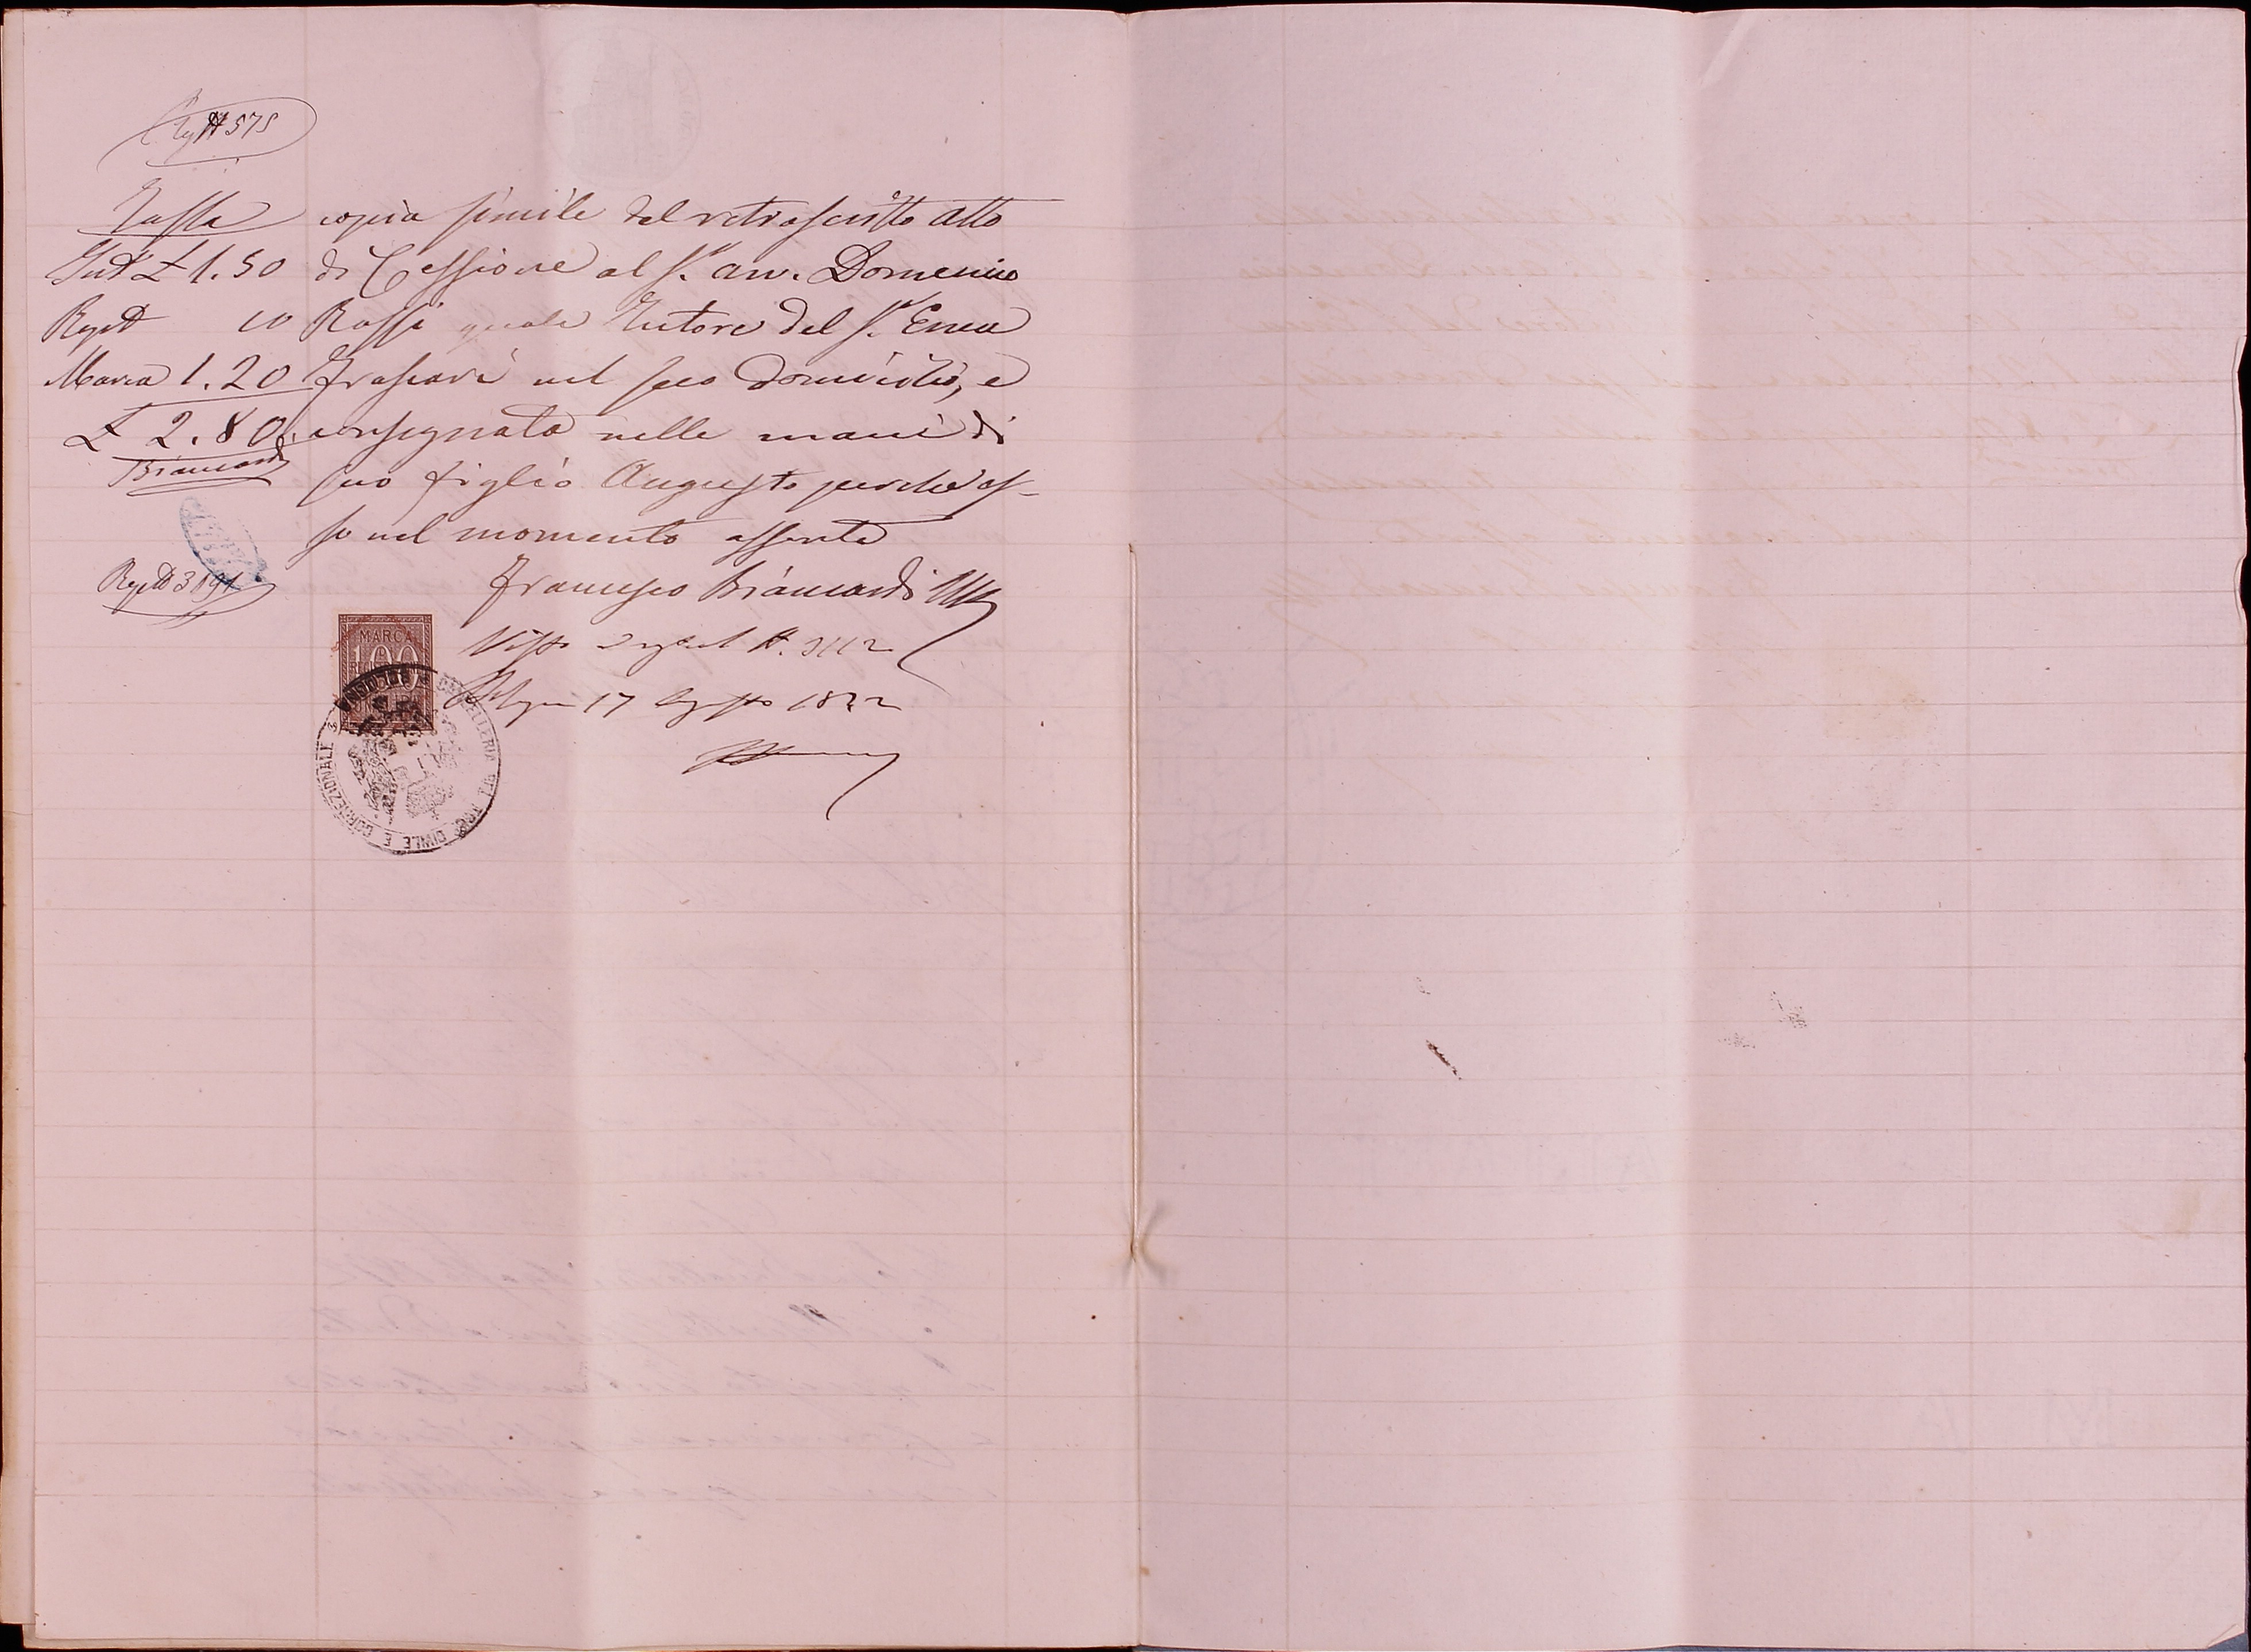 575
Tassa
Int. £ 1.50
Rept. 10
Marca 1.20
£ 2.80
Biancardi
Rept. 3191
copia simile del retroscritto atto
di Cessione al Sr. avv. Domenico
Rossi quale Tutore del Sr. Enea
Frascari nel suo domicilio, e
consegnata nelle mani di
suo figlio Augusto perche es-
so nel momento assente
Francesco Biancardi Usc
Visto N. 3112
Bologna 17 Agosto 18
MARCA
100
CANCELLERIA DEL TRIB. CIVILE E CORREZIONALE